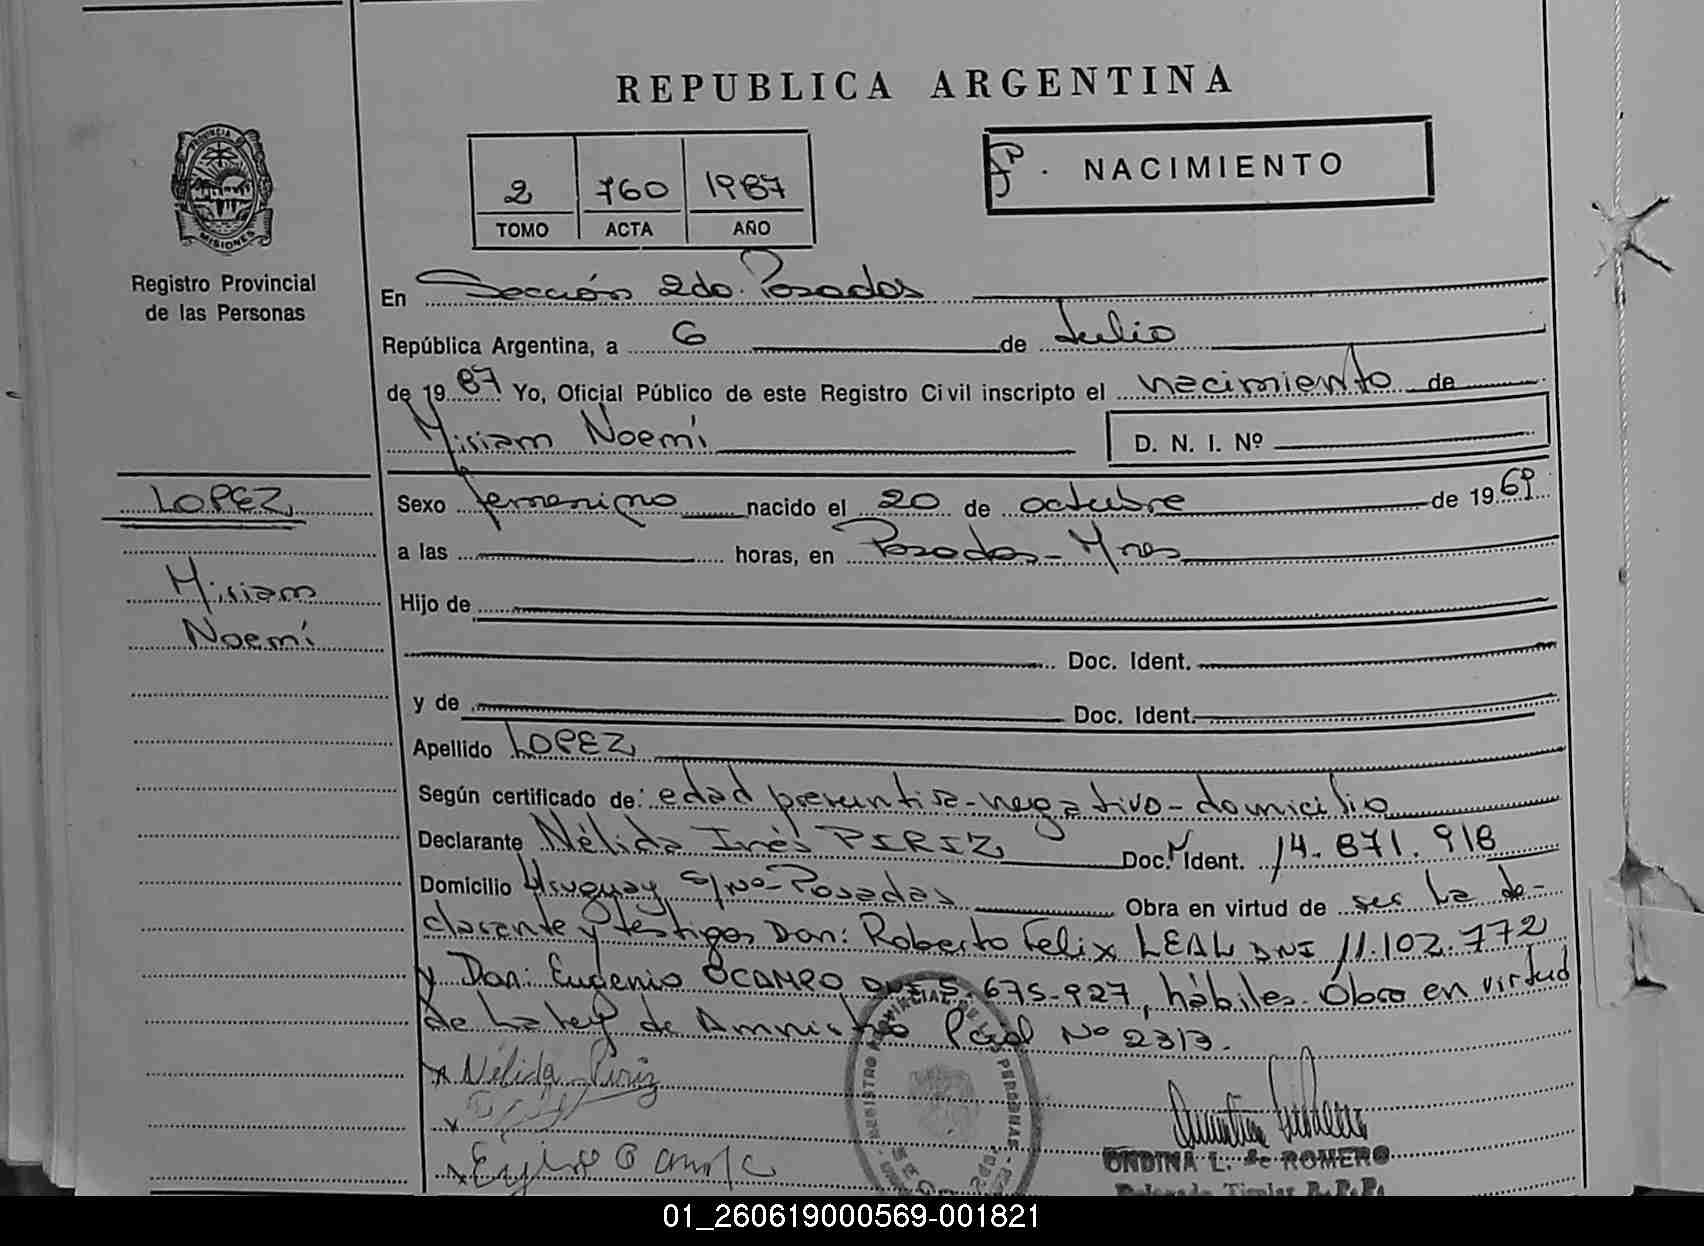 REPUBLICA ARGENTINA
PROVINCIA DE
MISIONES
Registro Provincial
de las Personas
2 760 1987
TOMO ACTA AÑO
NACIMIENTO
En Sección 2da. Posadas
República Argentina, a 6 de Julio
de 1987 Yo, Oficial Público de este Registro Civil inscripto el nacimiento de
Miriam Noemí D. N. I. Nº
LOPEZ
Miriam
Noemí
Sexo femenino nacido el 20 de octubre de 1969
a las horas, en Posadas - Mnes
Hijo de
Doc. Ident.
y de Doc. Ident.
Apellido LOPEZ
Según certificado de: edad presuntiva - negativo - domicilio
Declarante Nélida Inés PIRIZ Doc. Ident. 14.871.918
Domicilio Uruguay s/nº Posadas Obra en virtud de ser la de-
clarante y testigos Don: Roberto Felix LEAL DNI 11.102.772
y Don: Eugenio OCAMPO DNI 5.675.927, hábiles. Obra en virtud
de La ley de Amnistía Pcial Nº 2313.
Nélida Piriz
ONDINA L. de ROMERO
Delegada Titular R.P.P.
01_260619000569-001821